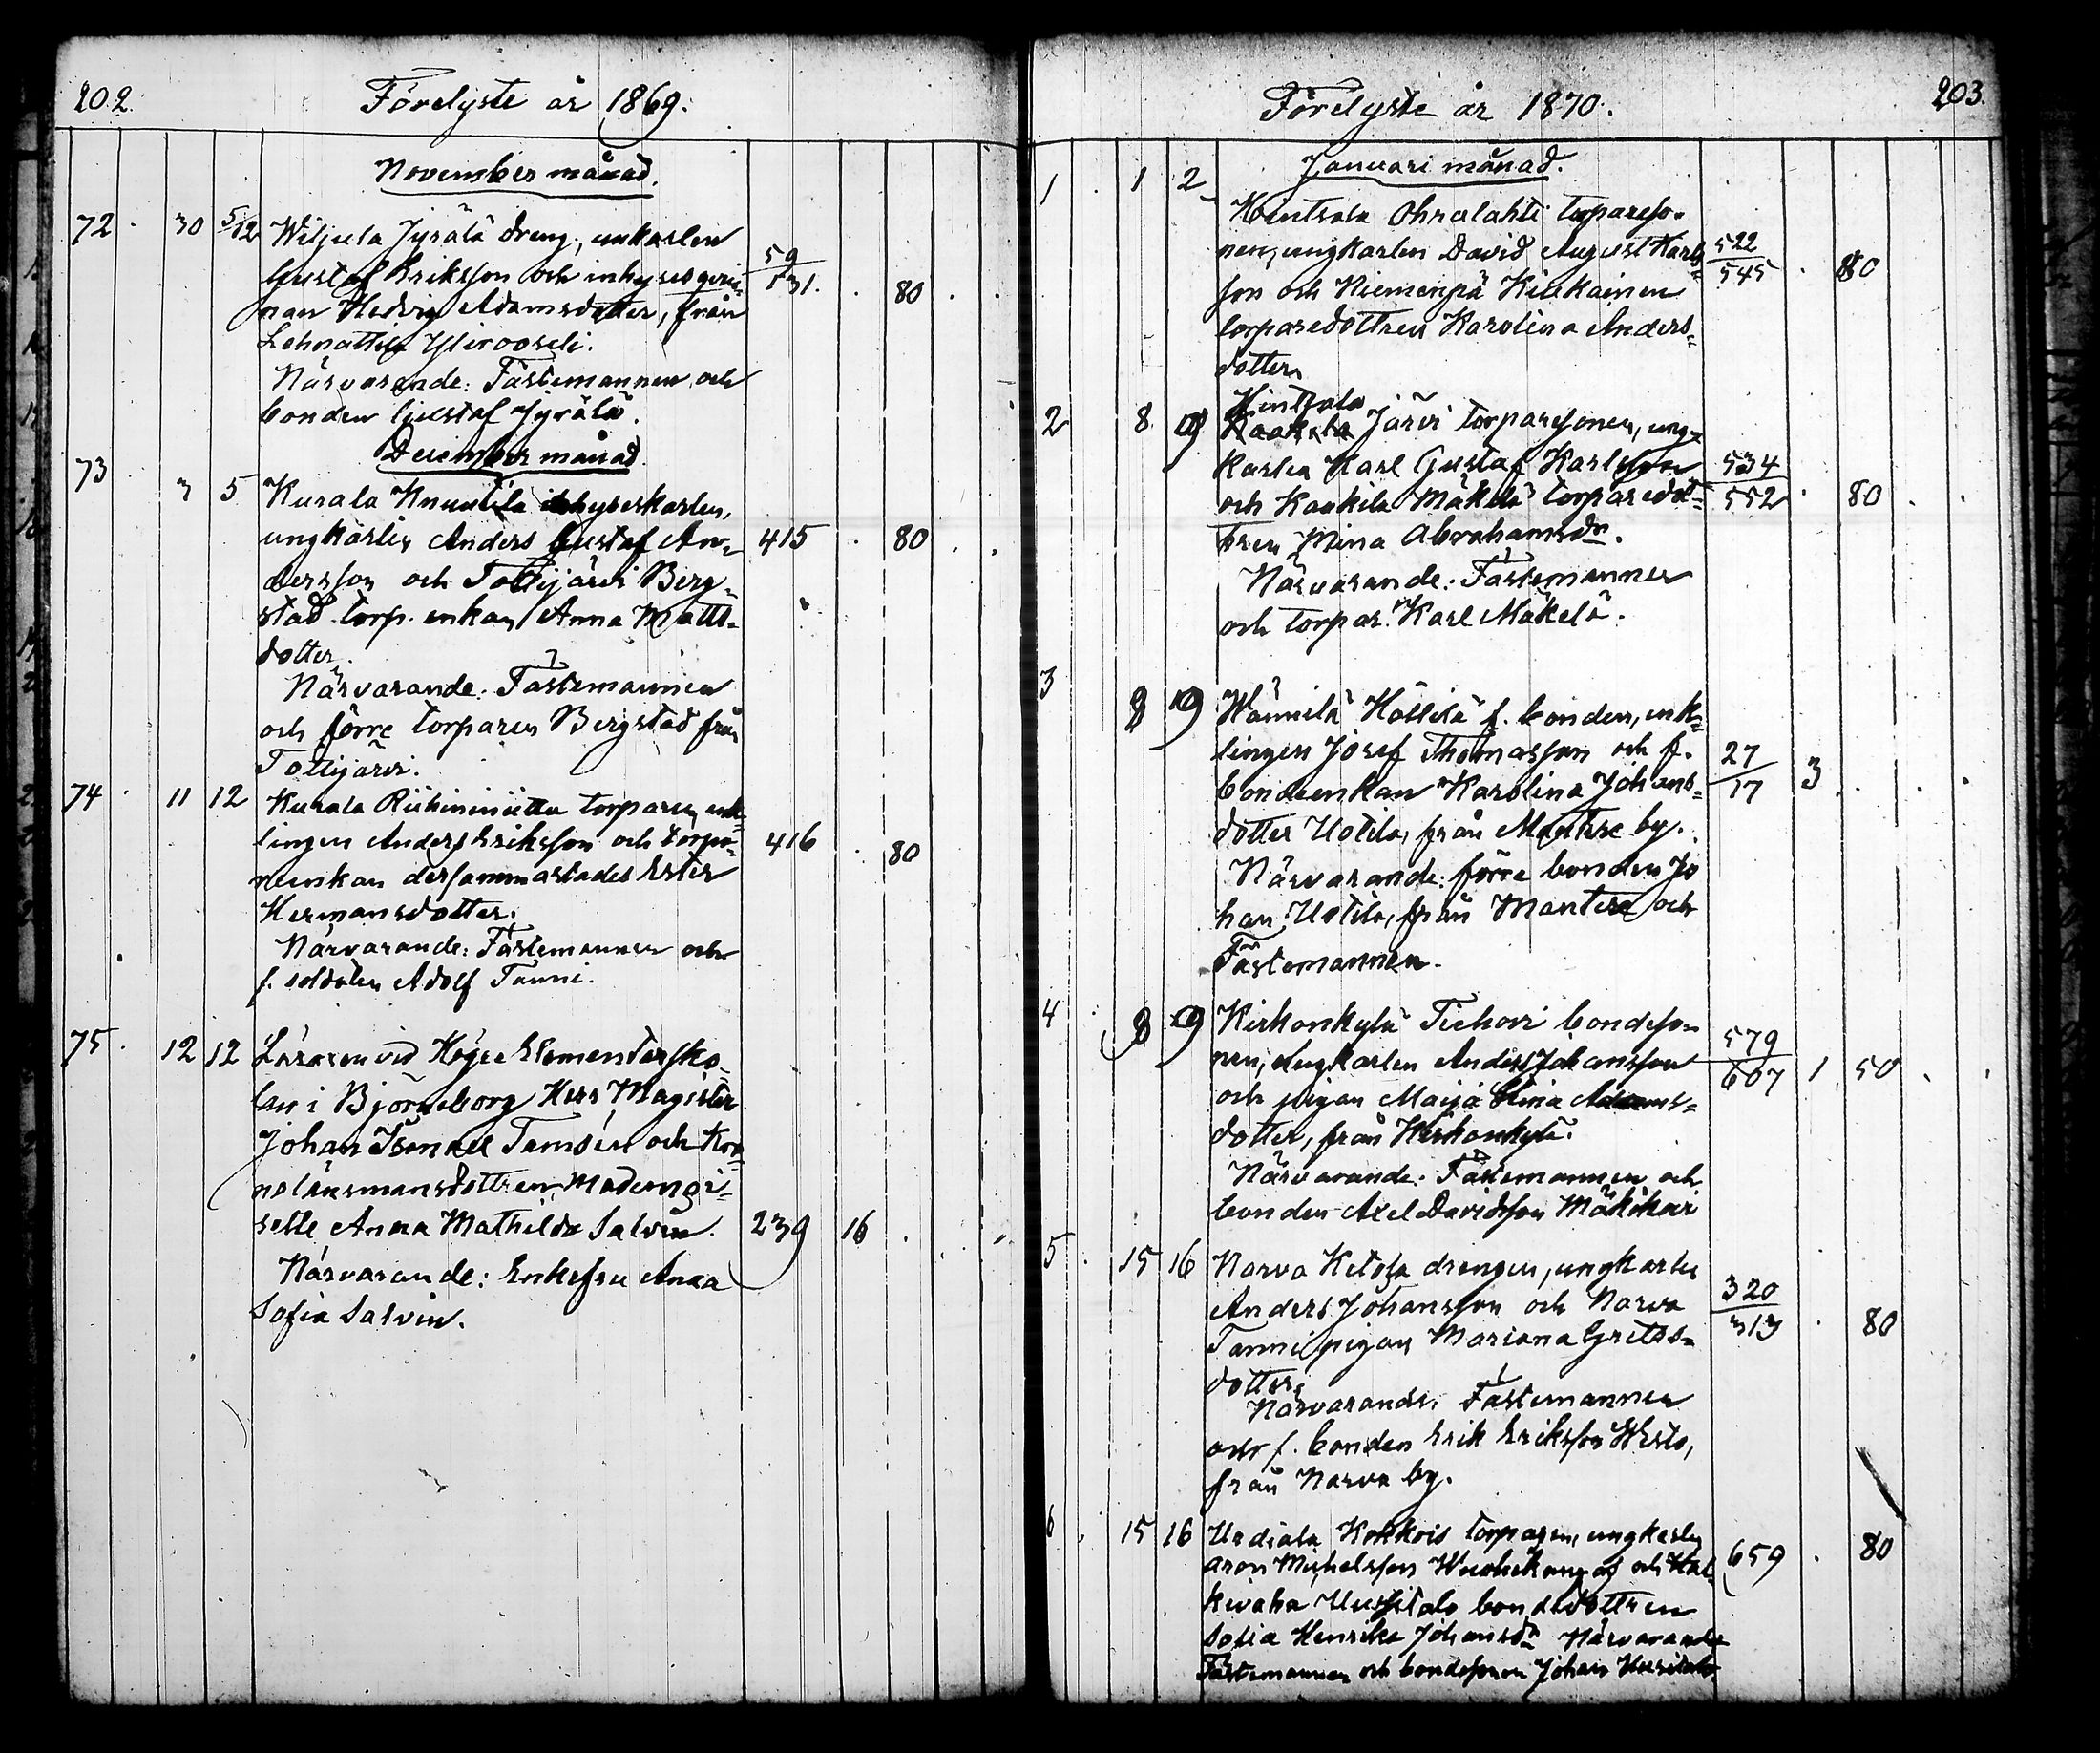 202. Förelyste år 1869.
November månad.
72 30 5/12 Wiljula Jyrälä dreng, unkarlen
Gustaf Eriksson och inhysesqvin- 59/131. 80
nan Hedvig Adamsdotter, från
Närvarande: Fästemannen och
bonden Gustaf Jyrälä.
December månad
73 3 5 Kurala Knuutila inhyseskarlen,
ungkarlen Anders Gustaf An- 415 80
dersson och Tottijärvi Berg-
stad torp. enkan Anna Matts-
dotter.
Närvarande: Fästemannen
och förre torparen Bergstad från
Tottijärvi.
74 11 12 Kurala Riihiniittu torparen, enk-
lingen Anders Eriksson och torpa- 416 80
renkan dersammastädes Ester
Hermansdotter.
Närvarande: Fästemannen och
f. soldaten Adolf Tanni.
75 12 12 Läraren vid Högre Elementarsko-
lan i Björneborg Herr Magister
Johan Ismael Tamsén och Kro-
nolänsmansdottren Mademoi-
selle Anna Mathilda Salvén. 239 16
Närvarande: Enkefru Anna
Sofia Salvén.
203.
Förelyste år 1870.
Januari månad.
1 1 2
Hintsala Ohralahti torpareso-
nen, ungkarlen David August Karls- 522/545 80
son och Niemenpä Kiukainen
torparedottren Karolina Anders-
dotter
Hintsala
2 8 9 Järvi torparesonen, ung-
karlen Karl Gustaf Karlsson 534/552 80
och Kaakila Mäkelä torparedot-
tren Mina Abrahamsdr.
Närvarande: Fästemannen
och torpar. Karl Mäkelä.
3 8 9 Wännilä Höllilä f. bonden, enk-
lingen Josef Thomasson och f. 27/17 3
bondeenkan Karolina Johans-
dotter Uotila, från Mantere by.
Närvarande: förre bonden Jo
han Uotila, från Mantere och
Fästemannen.
4 8 9 Kirkonkylä Tichari bondeso-
nen, ungkarlen Anders Johansson 579/607 1 50
och pigan Maija Stina Adams-
dotter, från Kirkonkylä.
Närvarande: Fästemannen och
bonden Axel Davidsson
5 15 16 Narva Ketola drengen, ungkarlen
Anders Johansson och Narva 320/313 80
Tanni pigan Mariana Gretas-
dotter
Närvarande: Fästemannen
och f. bonden Erik Eriksson
från Narva by.
6 15 16 Urdiala Kokkois torparen, ungkarlen
Aron Michelsson och Hal- 659 80
kivaha Uusitalo bondedottren
Sofia Henrika Johansdr Närvarande
Fästemannen och bondesonen Johan Uusitalo.